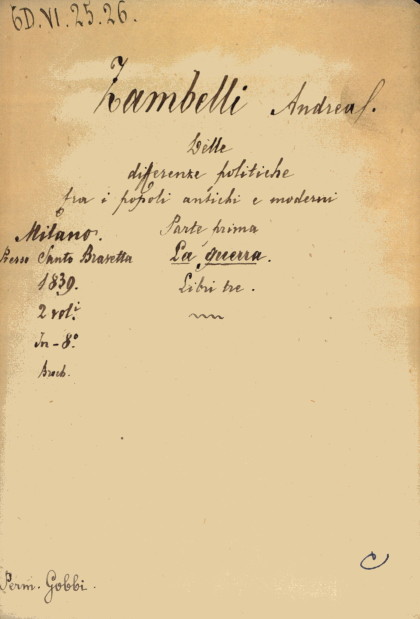 6D.VI.25.26.
Zambelli Andrea.
Delle
differenze politiche
fra i popoli antichi e moderni
Parte prima
La guerra.
Libri tre.
Milano.
Presso Santo Bravetta
1839.
2 vol.i
In-8.o
Broch.
Perm. Gobbi.